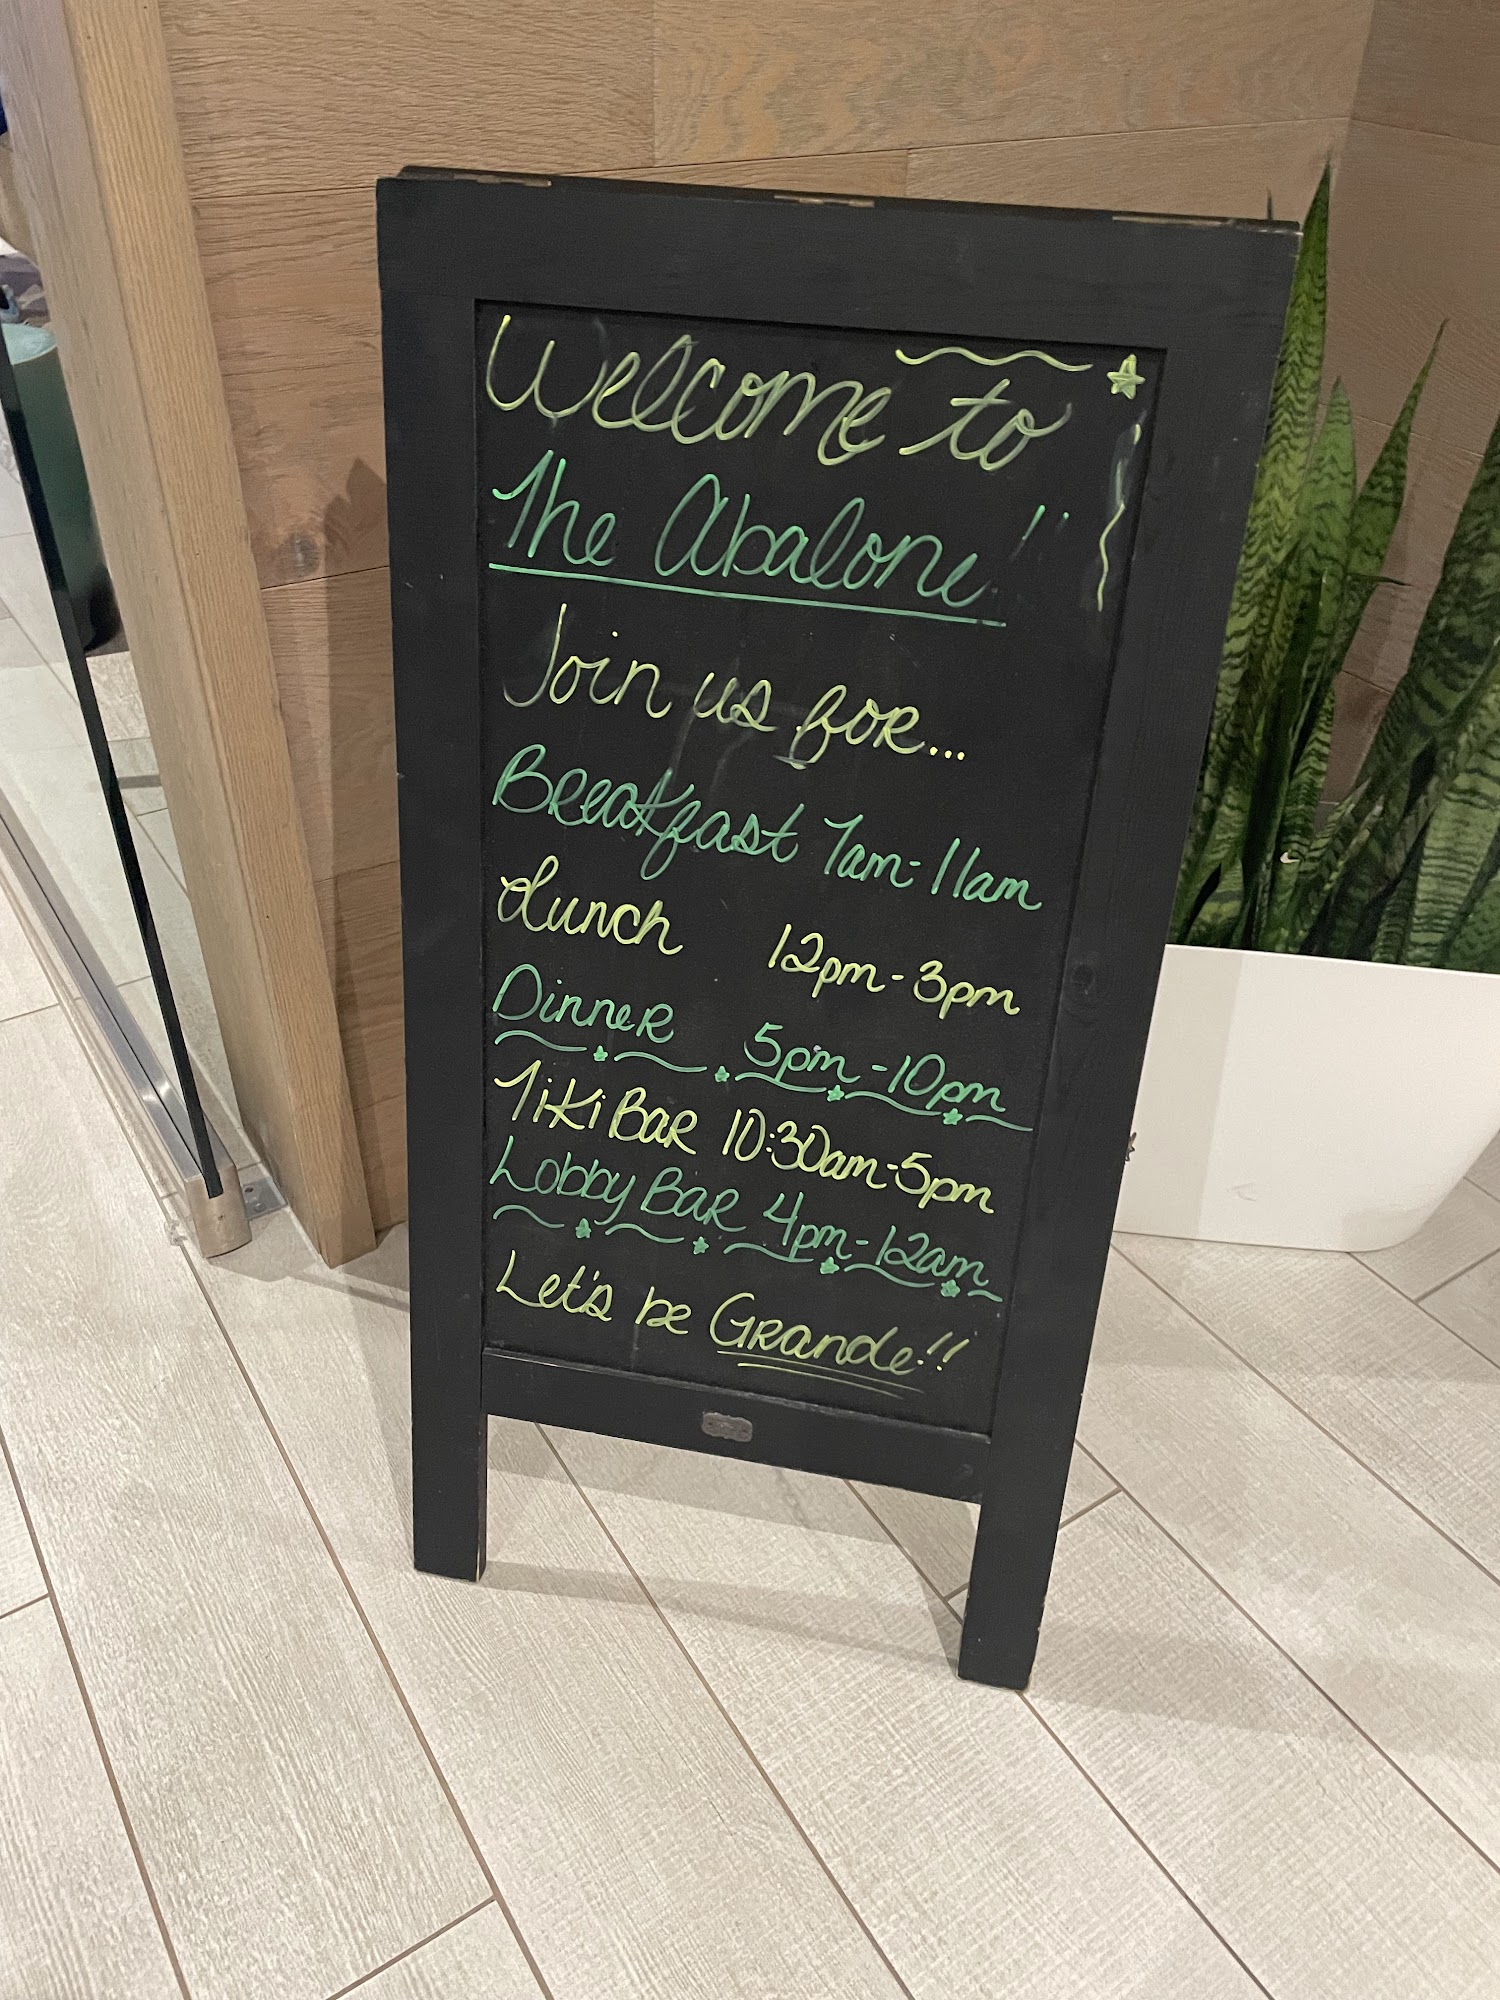 Welcome to
The Abalone!!
Join us for...
Breakfast 7am-11am
Lunch 12pm-3pm
Dinner 5pm-10pm
Tiki Bar 10:30am-5pm
Lobby Bar 4pm-12am
Let's be Grande!!